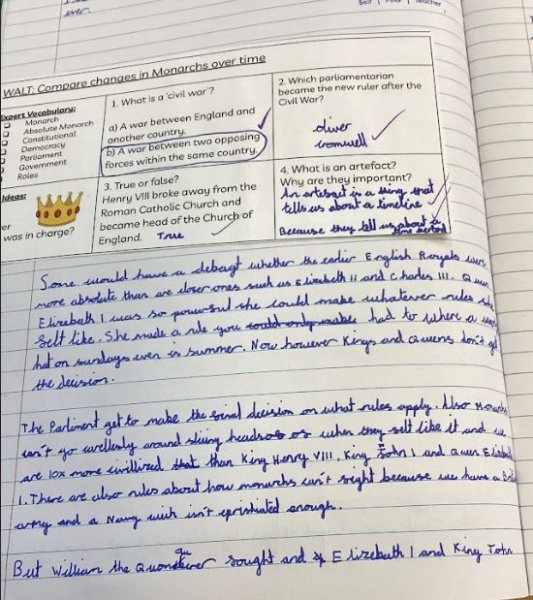 ever.
Self
Peer
Teacher
WALT: Compare changes in Monarchs over time
Expert Vocabulary:
Monarch
Absolute Monarch
Constitutional
Democracy
Parliament
Government
Roles
Ideas:
er
was in charge?
1. What is a 'civil war'?
a) A war between England and
another country.
b) A war between two opposing
forces within the same country.
2. Which parliamentarian
became the new ruler after the
Civil War?
oliver
cromwell
3. True or false?
Henry VIII broke away from the
Roman Catholic Church and
became head of the Church of
England. True
4. What is an artefact?
Why are they important?
An artefact is a thing that
tells us about a timeline
Because they tell us about a
time period
Some would have a debagt whether the earlier English Royals were
more absolute than are closer ones such as Elizabeth II and Charles III. Queen
Elizebath I was so powerful she could make whatever rules she
felt like. She made a rule you could only make had to where a
hat on sundays even in summer. Now however Kings and Queens don't get
the decision.
The Parliment get to make the final decision on what rules apply. Also Monarchs
can't go carelessly around sliing heads of when they felt like it and we
are 10x more civillized that than King Henry VIII, King John I and Queen Elizabeth
1. There are also rules about how monarchs can't fight because we have a
army and a Navy wich isn't aprishiated enough.
But William the Quonquerer fought and Elizebath I and King John